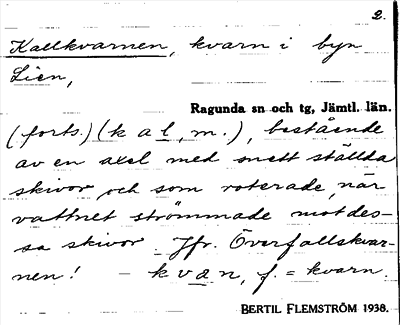 2.
Kallkvarnen, kvarn i byn
Lien,
Ragunda sn och tg, Jämtl. län.
(forts.) (k a l, m.), bestående
av en axel med snett ställda
skivor och som roterade, när
vattnet strömmade mot des-
sa skivor. Jfr. Överfallskvar-
nen! - kvan, f. = kvarn
BERTIL FLEMSTRÖM 1938.